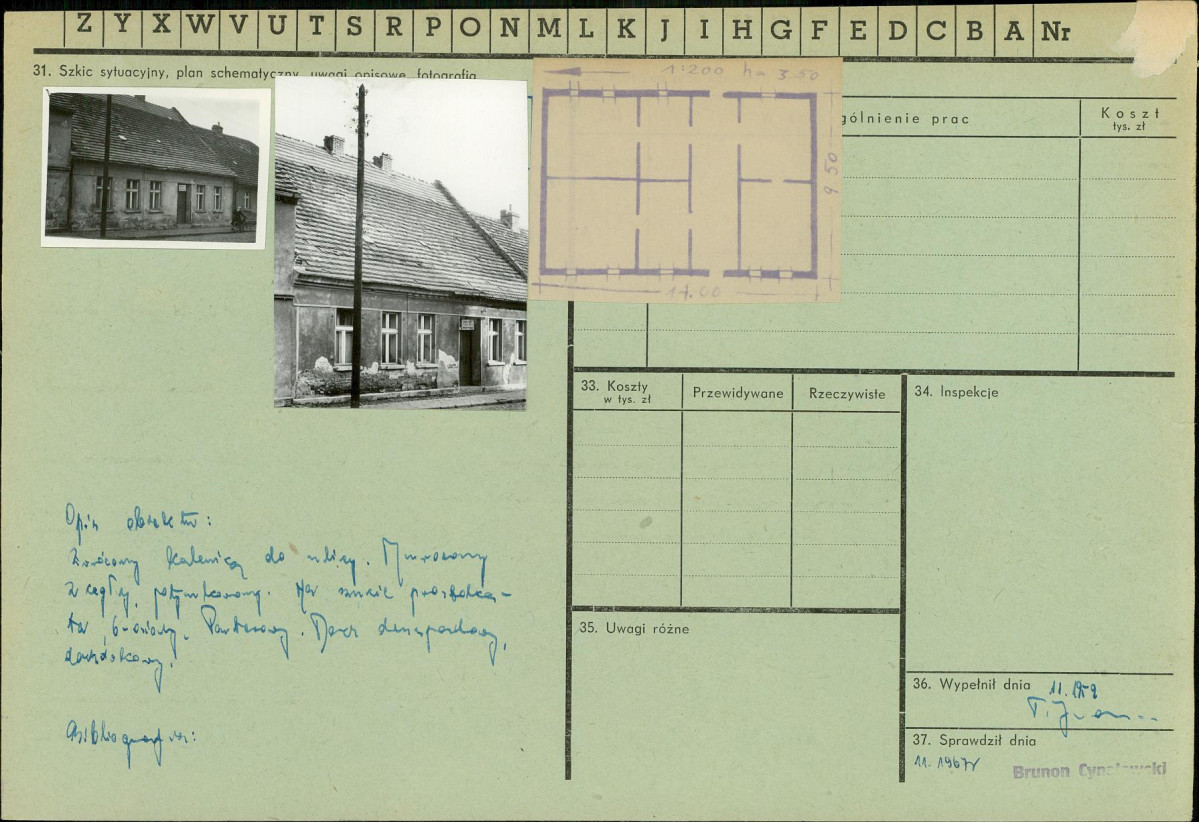 Z Y X W V U T S R P O N M L K J I H G F E D C B A Nr
31. Szkic sytuacyjny, plan schematyczny, uwagi opisowe, fotografia
1:200 h= 3.50
9.50
14.00
gólnienie prac
Koszt
tys. zł
33. Koszty
w tys. zł
Przewidywane
Rzeczywiste
34. Inspekcje
Opis obiektu:
Zwrócony kalenicą do ulicy. Murowany
z cegły, potynkowany. Na rzucie prostoką-
ta, 6-osiowy, Parterowy. Dach dwuspadowy,
dachówkowy.
Bibliografia:
35. Uwagi różne
36. Wypełnił dnia
11.1959
37. Sprawdził dnia
11.1967r
Brunon